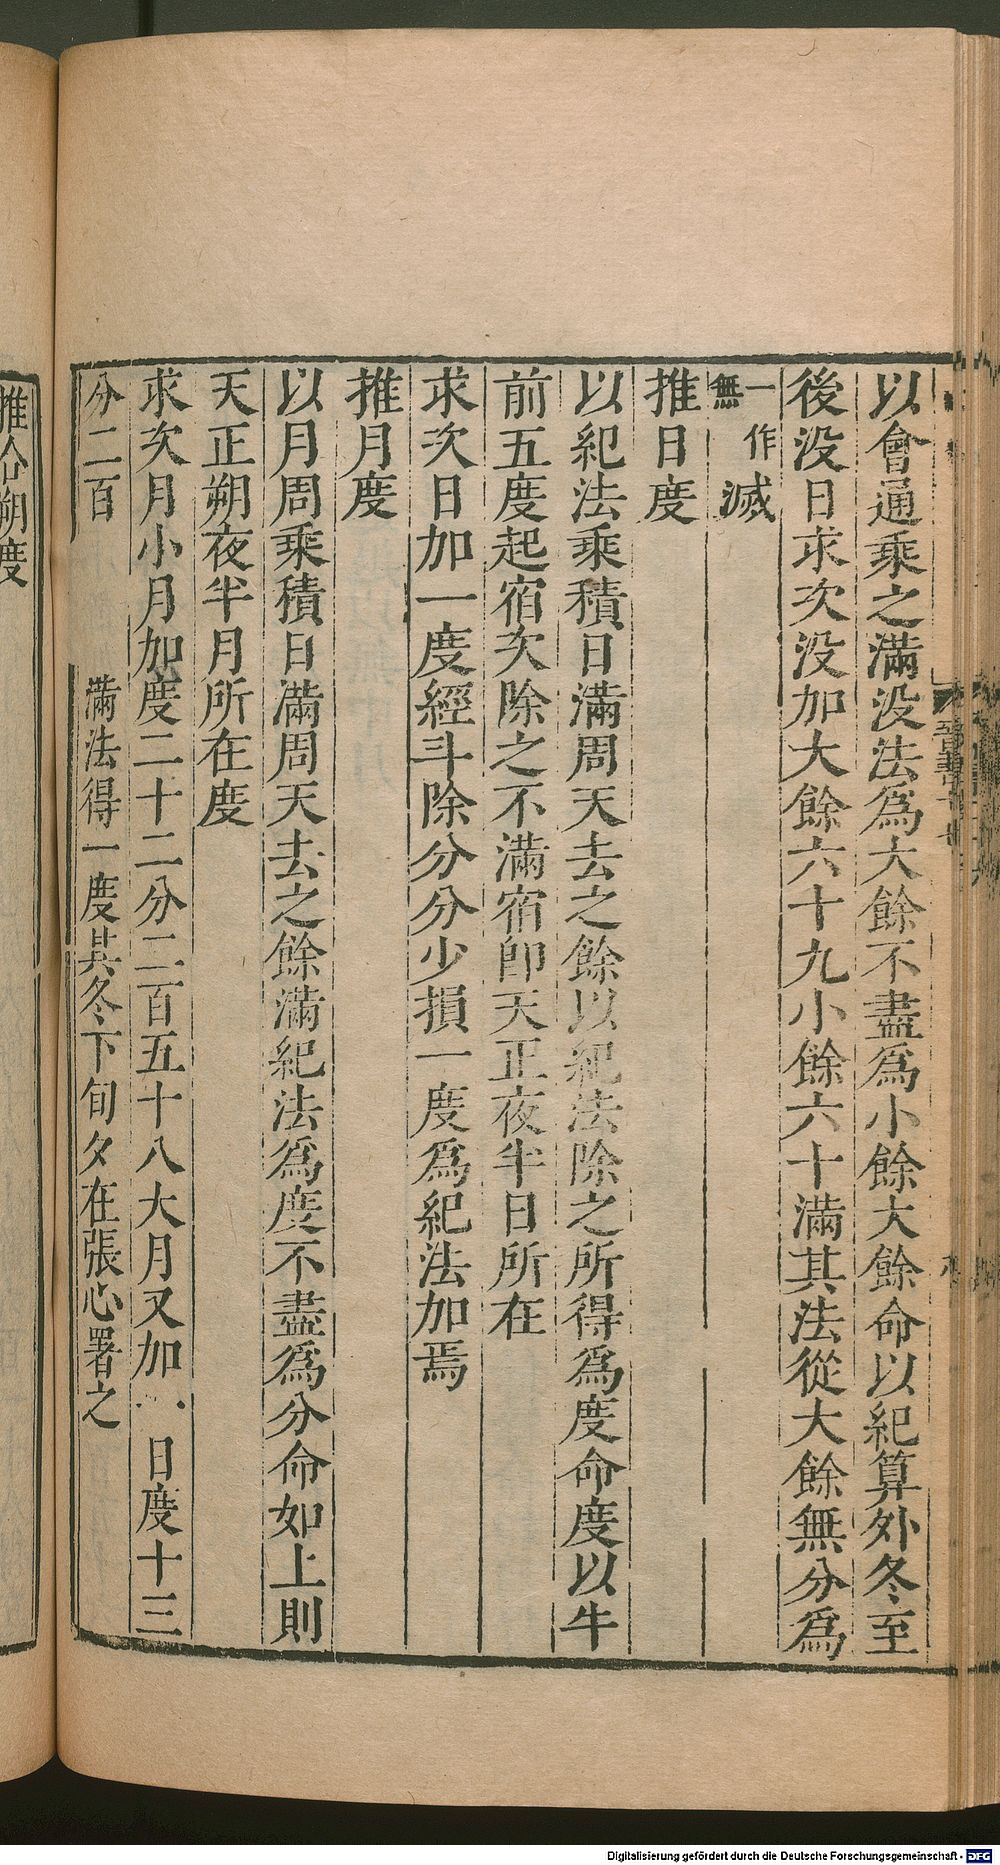 以會通乘之滿没法爲大餘不盡爲小餘大餘命以紀算外冬至
後没日求次没加大餘六十九小餘六十滿其法從大餘無分爲
一作無滅
推日度
以紀法乘積日滿周天去之餘以紀法除之所得爲度命度以牛
前五度起宿次除之不滿宿即天正夜半日所在
求次日加一度經斗除分分少損一度爲紀法加焉
推月度
以月周乘積日滿周天去之餘滿紀法爲度不盡爲分命如上則
天正朔夜半月所在度
求次月小月加度二十二分二百五十八大月又加一日度十三
分二百
滿法得一度其冬下旬夕在張心署之
推合朔度
晋書十七
Digitalisierung gefördert durch die Deutsche Forschungsgemeinschaft - DFG